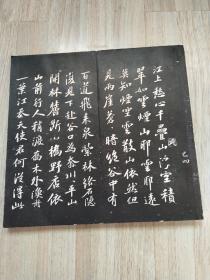 江上愁心千疊山浮空積
翠如雲煙山耶雲耶遠
莫知煙空雲散山依然但
見兩崖蒼蒼暗絕谷中有
百道飛来泉縈林絡石隱
復見下赴谷口為奔川平山
開林麓斷小橋野店依
山前行人稍渡喬木外漁舟
一葉江吞天使君何從得此